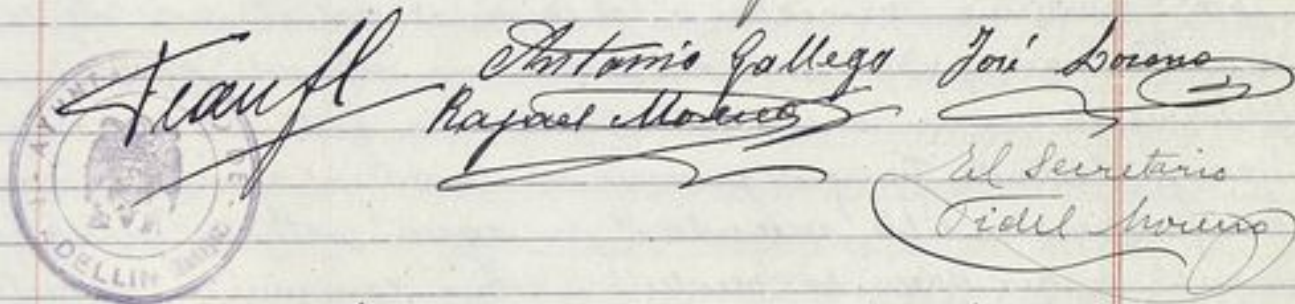 Antonio Gallego José Lozano
Rafael Moreno
El Secretario
Fidel Moreno
AYUNT
DELLIN